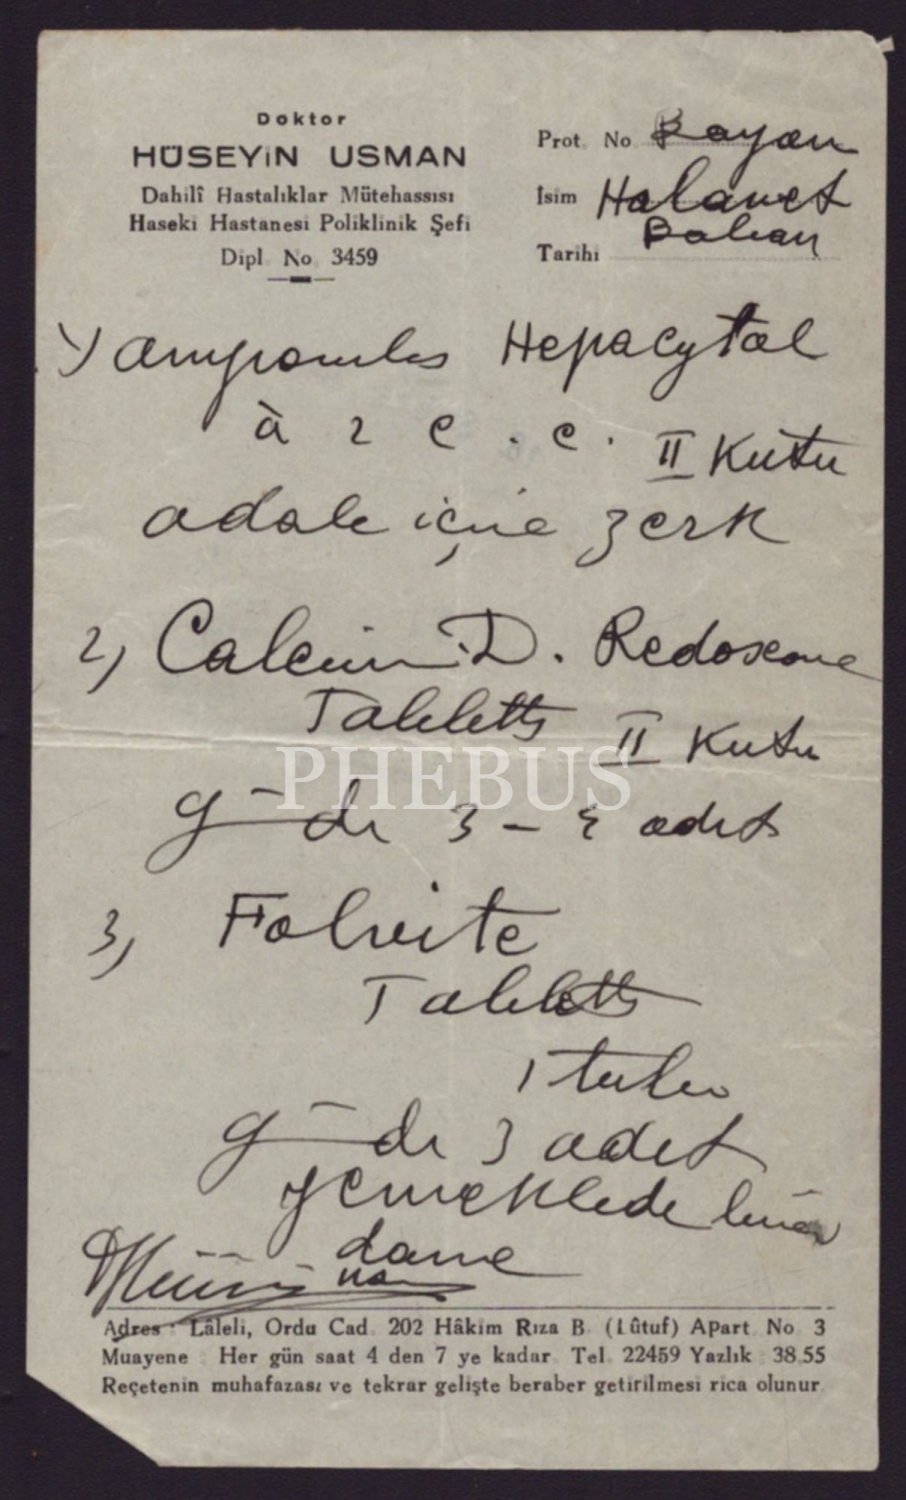 Doktor
HÜSEYİN USMAN
Dahilî Hastalıklar Mütehassısı
Haseki Hastanesi Poliklinik Şefi
Dipl. No. 3459
Prot. No Bayan
İsim
Tarihi
1) ampoules Hepacytal
à 2 c.c. II Kutu
adale içine zerk
2) Calcium D. Redoxone
Tabletts II Kutu
PHEBUS
g de 3 - 4 adet
3) Folvite
Tabletts
1 tube
g de 3 adet
yemeklede birer
dane
Adres : Lâleli, Ordu Cad. 202 Hâkim Rıza B. (Lûtuf) Apart. No 3
Muayene : Her gün saat 4 den 7 ye kadar. Tel. 22459 Yazlık : 38.55
Reçetenin muhafazası ve tekrar gelişte beraber getirilmesi rica olunur.